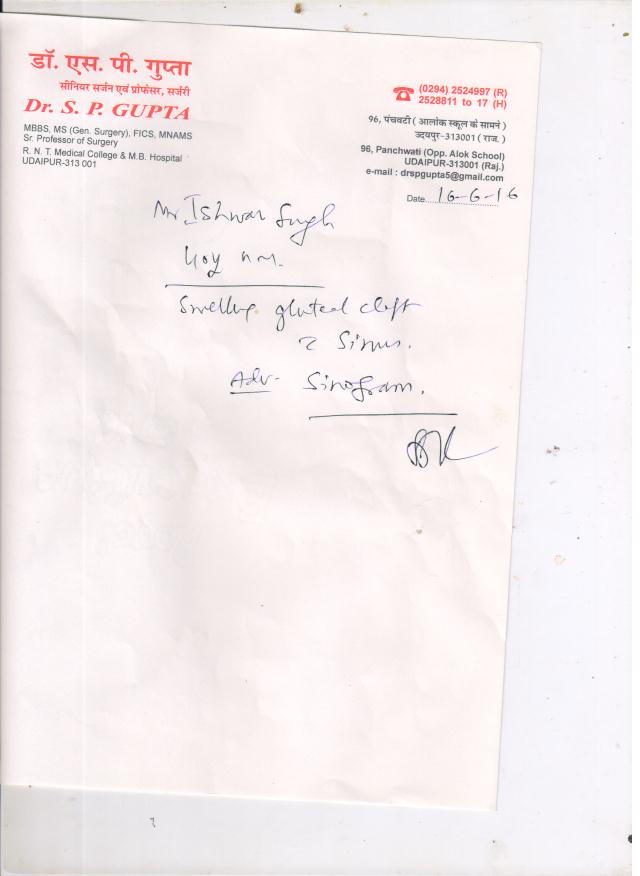 डॉ. एस. पी. गुप्ता
सीनियर सर्जन एवं प्रोफेसर, सर्जरी
Dr. S. P. GUPTA
MBBS, MS (Gen. Surgery), FICS, MNAMS
Sr. Professor of Surgery
R. N. T. Medical College & M.B. Hospital
UDAIPUR-313 001
(0294) 2524997 (R)
2528811 to 17 (H)
96, पंचवटी ( आलोक स्कूल के सामने )
उदयपुर-313001 ( राज. )
96, Panchwati (Opp. Alok School)
UDAIPUR-313001 (Raj.)
e-mail : drspgupta5@gmail.com
Date 16-6-16
Mr Ishwar Singh
40y
Swelling gluteal cleft
Sinus.
Adv- Sinogram.